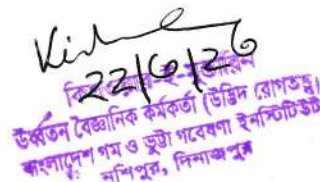 22/6/26
ঊর্ধ্বতন বৈজ্ঞানিক কর্মকর্তা (উদ্ভিদ রোগতত্ত্ব)
বাংলাদেশ গম ও ভুট্টা গবেষণা ইনস্টিটিউট
নশিপুর, দিনাজপুর